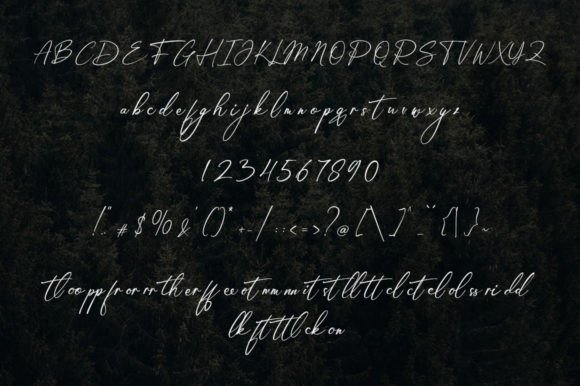 A B C D E F G H I J K L M N O P Q R S T U V W X Y Z
a b c d e f g h i j k l m n o p q r s t u v w x y z
1 2 3 4 5 6 7 8 9 0
! " # $ % & ' ( ) * + - / : ; < = > ? @ [ \ ] ^ _ ` { | } ~
tl oo pp fr or rr th er ff ee et mm nn it st ll tt cl ct el ol ss ri dd
lk ft ttl ck on